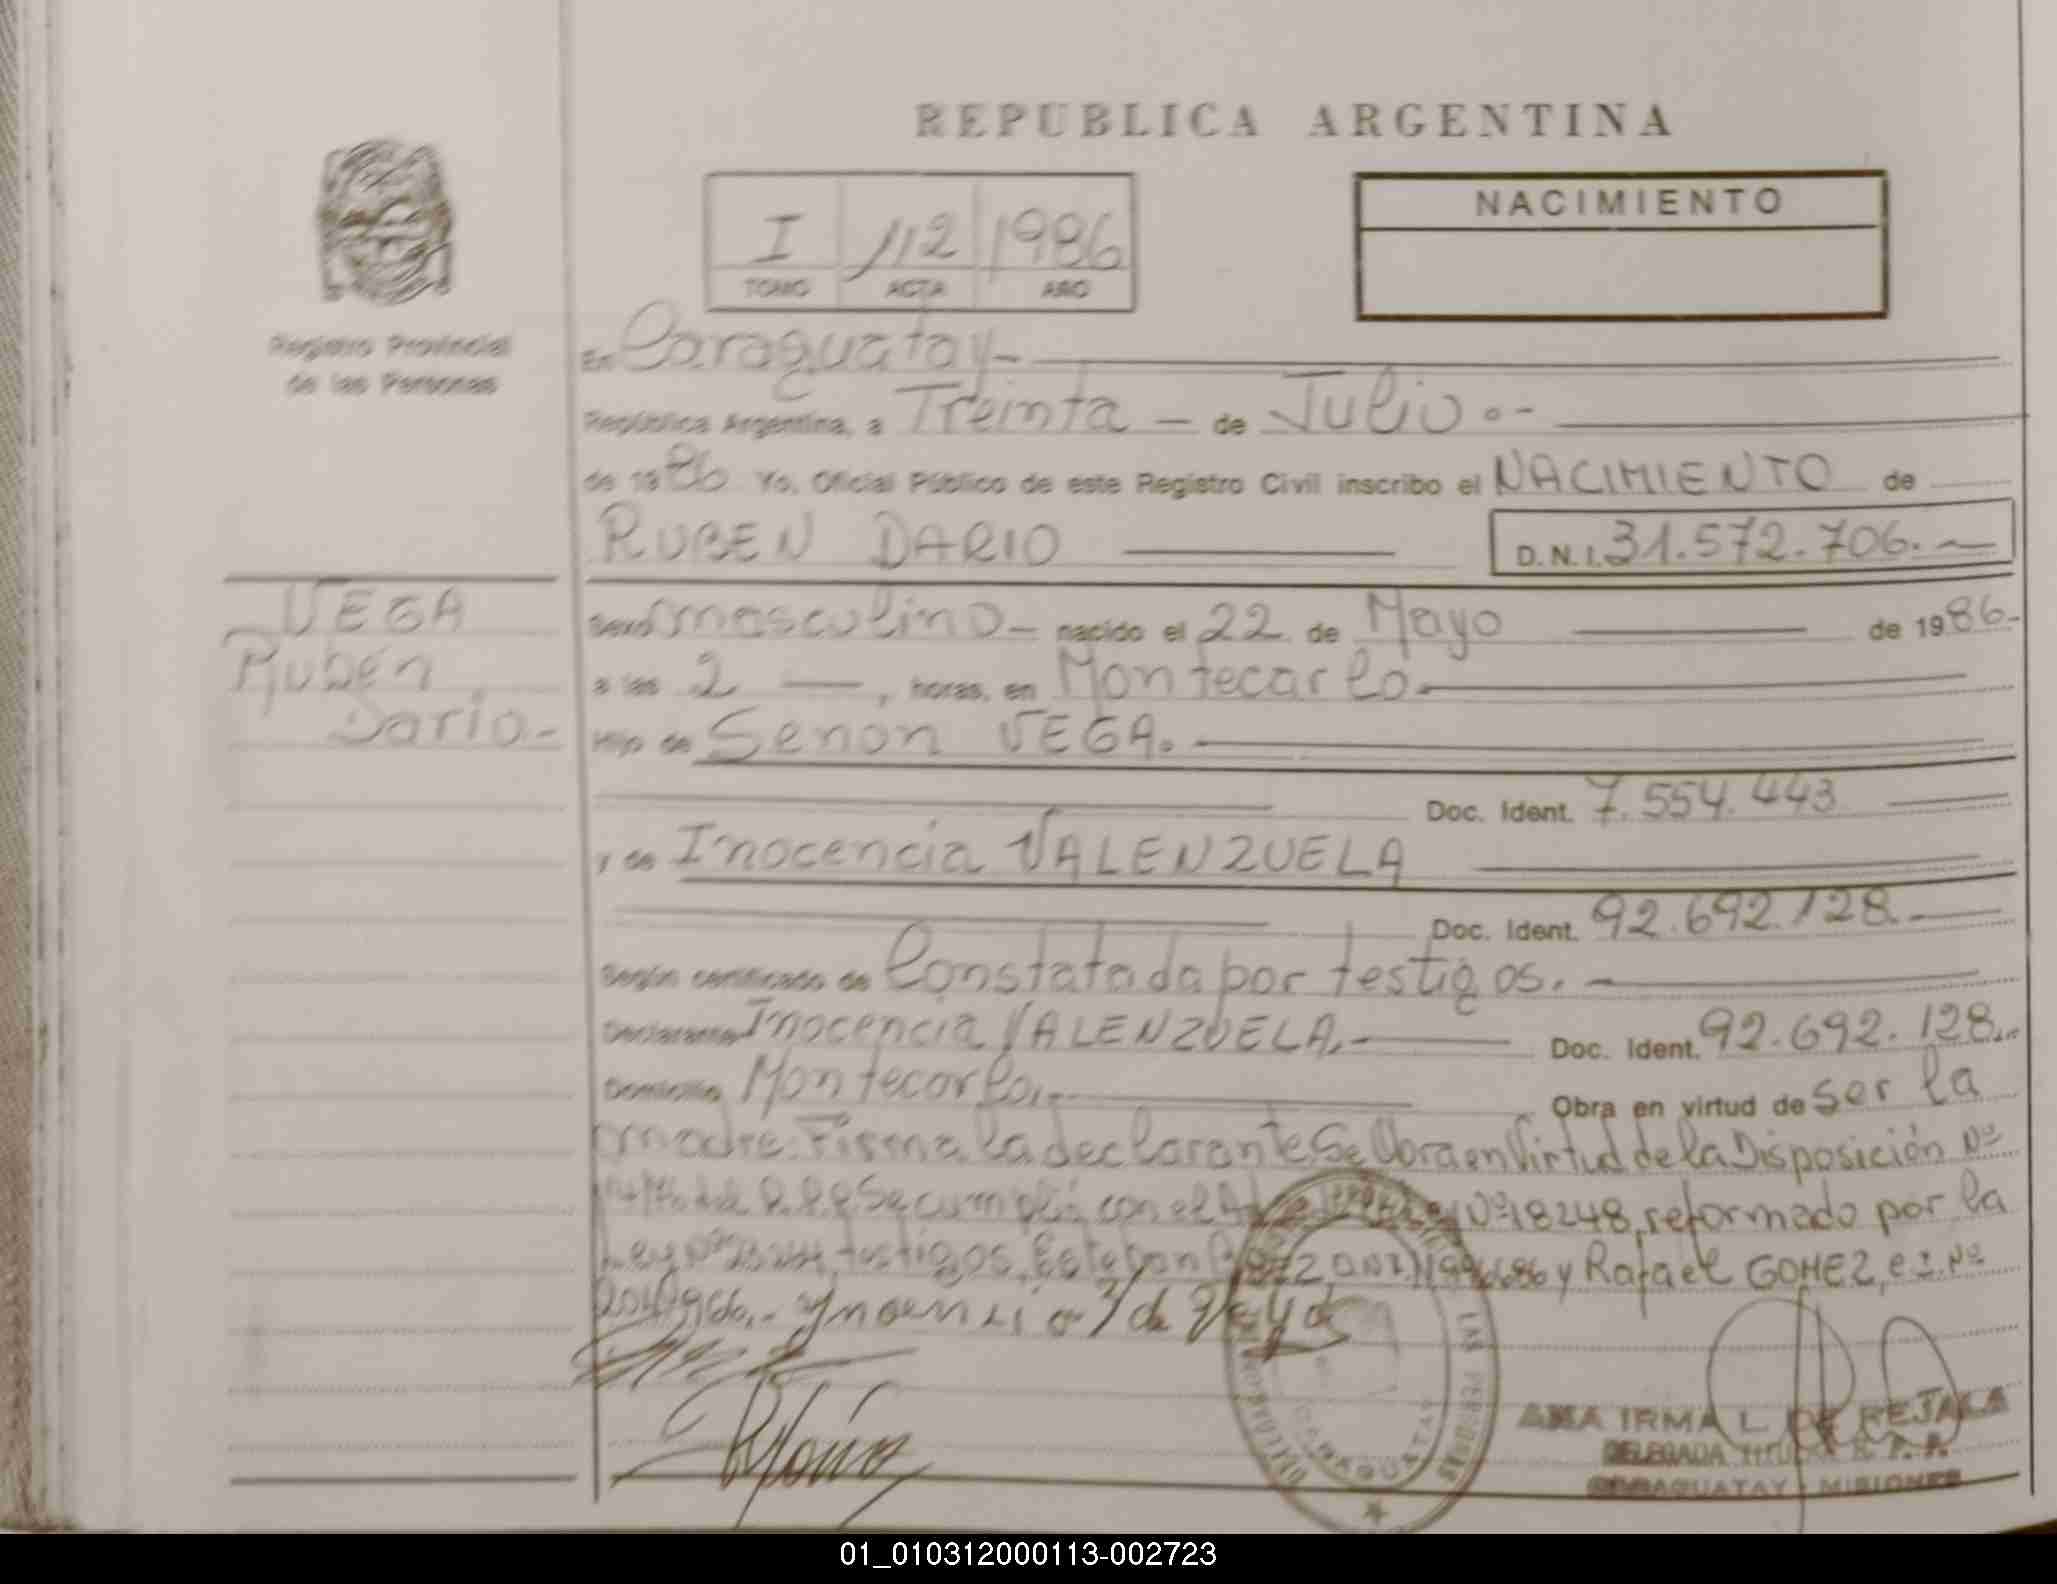 REPUBLICA ARGENTINA
NACIMIENTO
I 112 1986
TOMO ACTA AÑO
Registro Provincial
de las Personas
En Caraguatay -
República Argentina, a Treinta - de Julio.-
de 1986 Yo, Oficial Público de este Registro Civil inscribo el NACIMIENTO de
RUBEN DARIO D.N.I. 31.572.706.-
VEGA
Rubén
Dario-
Sexo masculino - nacido el 22 de Mayo de 1986-
a las 2 -, horas, en Montecarlo.
Hijo de Senon VEGA.
Doc. Ident. 7.554.443
y de Inocencia VALENZUELA
Doc. Ident. 92.692.128.-
Según certificado de Constatada por testigos.-
Declarante Inocencia VALENZUELA.- Doc. Ident. 92.692.128.-
Domicilio Montecarlo.- Obra en virtud de ser la
madre. Firma la declarante. Se Obra en Virtud de la Disposición Nº
Se cumplió con el Nº 18248, reformado por la
Ley testigos, Esteban y Rafael GOMEZ, C.I. Nº
LAS PERSONAS
CARAGUATAY
ANA IRMA L. DE REJALA
DELEGADA TITULAR R. P. P.
CARAGUATAY - MISIONES
01_010312000113-002723